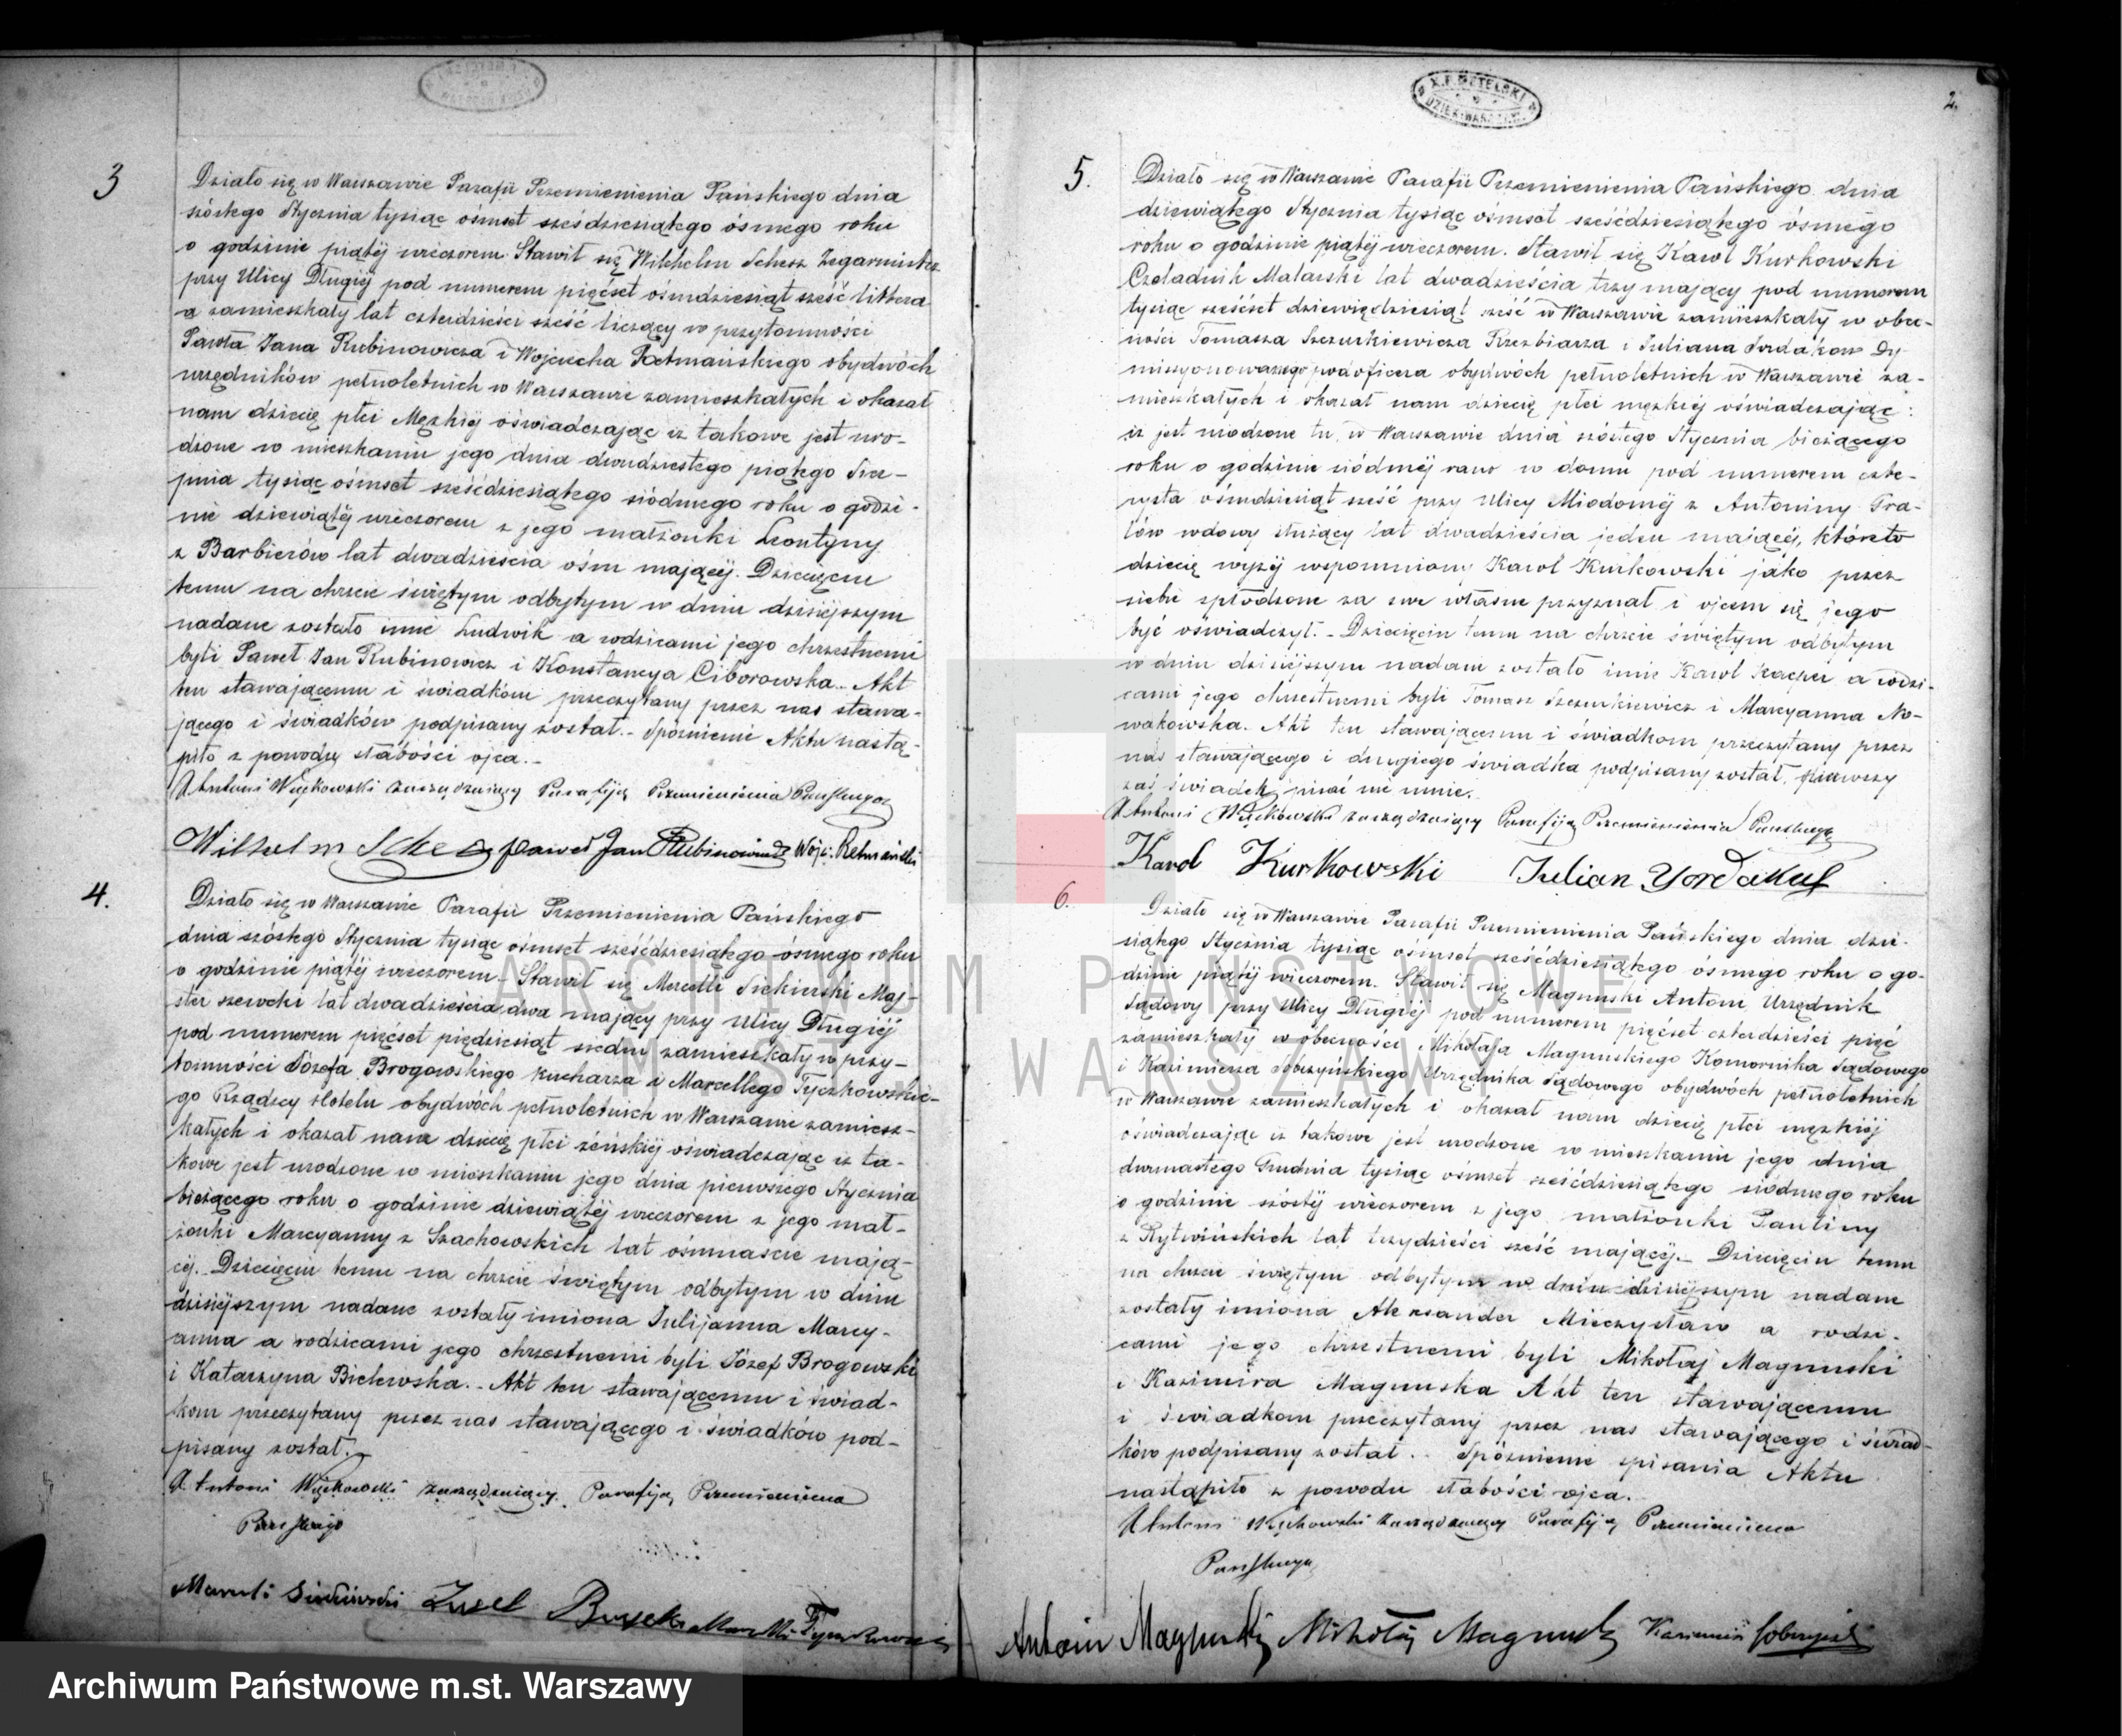 3
Działo się w Warszawie Parafii Przemienienia Pańskiego dnia
szóstego Stycznia tysiąc ośmset sześćdziesiątego ósmego roku
o godzinie piątéj wieczorem Stawił się Wilhelm Schesz Zegarmistrz
przy Ulicy Długiej pod numerem pięćset ośmdziesiąt sześć littera
a zamieszkały lat czterdzieści sześć liczący w przytomności
Pawła Jana Rubinowicza i Wojciecha Retmańskiego obydwóch
urzędników pełnoletnich w Warszawie zamieszkałych i okazał
nam dziecię płci Męzkiéj oświadczając iż takowe jest uro-
dzone w mieszkaniu jego dnia dwudziestego piątego Sier-
pnia tysiąc ośmset sześćdziesiątego siódmego roku o godzi-
nie dziewiątéj wieczorem z jego małżonki Leontyny
z Barbierów lat dwadzieścia ośm mającéj. Dziecięciu
temu na chrzcie świętym odbytym w dniu dzisiéjszym
nadane zostało imie Ludwik a rodzicami jego chrzestnemi
byli Paweł Jan Rubinowicz i Konstancya Ciborowska. Akt
ten stawającemu i świadkom przeczytany przez nas stawa-
jącego i świadków podpisany został.- Spóźnienie Aktu nastą-
piło z powodu słabości ojca.-
X Antoni Więckowski zarządzający Parafiją Przemienienia Pańskiego
Wilhelm Paweł Jan Rubinowicz Wojc: Retmański
4.
Działo się w Warszawie Parafii Przemienienia Pańskiego
dnia szóstego Stycznia tysiąc ośmset sześćdziesiątego ósmego roku
o godzinie piątéj wieczorem- Stawił się Marcelli Siekierski Maj-
ster szewcki lat dwadzieścia dwa mający przy Ulicy Długiéj
pod numerem pięćset pięćdziesiąt siedm zamieszkały w przy-
tomności Józefa Brogowskiego kucharza i Marcellego Tyczkowskie-
go Rządzcy Hotelu obydwóch pełnoletnich w Warszawie zamiesz-
kałych i okazał nam dziecię płci żeńskiéj oświadczając iż ta-
kowe jest urodzone w mieszkaniu jego dnia pierwszego Stycznia
bieżącego roku o godzinie dziewiątéj wieczorem z jego mał-
żonki Marcyanny z Szachowskich lat ośmnaście mają-
céj.- Dziecięciu temu na chrzcie świętym odbytym w dniu
dzisiéjszym nadane zostały imiona Julijanna Marcy-
anna a rodzicami jego chrzestnemi byli Józef Brogowski
i Katarzyna Bielewska.- Akt ten stawającemu i świad-
kom przeczytany przez nas stawającego i świadków pod-
pisany został.-
X. Antoni Więckowski zarządzający Parafiją Przemienienia
Pańskiego
Marceli Siekierski Józef Marcelli Tyczkowski
2.
5.
Działo się w Warszawie Parafii Przemienienia Pańskiego dnia
dziewiątego Stycznia tysiąc ośmset sześćdziesiątego ósmego
roku o godzinie piątéj wieczorem. Stawił się Karol Kurkowski
Czeladnik Malarski lat dwadzieścia trzy mający pod numerem
tysiąc sześćset dziewięćdziesiąt sześć w Warszawie zamieszkały w obec-
ności Tomasza Szczurkiewicza Rzeźbiarza i Juliana Dy-
missyonowanego podoficera obydwóch pełnoletnich w Warszawie za-
mieszkałych i okazał nam dziecię płci męzkiéj oświadczając:
iż jest urodzone tu, w Warszawie dnia szóstego Stycznia bieżącego
roku o godzinie siódméj rano w domu pod numerem czte-
rysta ośmdziesiąt sześć przy Ulicy Miodowéj z Antoniny Gra-
lów wdowy służącéj lat dwadzieścia jeden mającéj, któreto
dziecię wyżéj wspomniony Karol Kurkowski jako przez
siebie spłodzone za swe własne przyznał i ojcem się jego
być oświadczył.- Dziecięciu temu na chrzcie świętym odbytym
w dniu dzisiéjszym nadane zostało imie Karol Kacper a rodzi-
cami jego chrzestnemi byli Tomasz Szczurkiewicz i Marcyanna No-
wakowska. Akt ten stawającemu i świadkom przeczytany przez
nas stawającego i drugiego świadka podpisany został, pierwszy
zaś świadek pisać nie umie.
X Antoni Więckowski zarządzający Parafiją Przemienienia Pańskiego
Karol Kurkowski Julian
6.
Działo się w Warszawie Parafii Przemienienia Pańskiego dnia dzie-
siątego Stycznia tysiąc ośmset sześćdziesiątego ósmego roku o go-
dzinie piątéj wieczorem. Stawił się Magnuski Antoni Urzędnik
Sądowy przy Ulicy Długiéj pod numerem pięćset czterdzieści pięć
zamieszkały w obecności Mikołaja Magnuskiego Komornika Sądowego
i Kazimierza Sobczyńskiego Urzędnika Sądowego obydwóch pełnoletnich
w Warszawie zamieszkałych i okazał nam dziecię płci męzkiéj
oświadczając iż takowe jest urodzone w mieszkaniu jego dnia
dwunastego Grudnia tysiąc ośmset sześćdziesiątego siódmego roku
o godzinie szóstéj wieczorem z jego małżonki Pauliny
z Rytwińskich lat trzydzieści sześć mającéj.- Dziecięciu temu
na chrzcie świętym odbytym w dniu dzisiéjszym nadane
zostały imiona Aleksander Mieczysław a rodzi-
cami jego chrzestnemi byli Mikołaj Magnuski
i Kazimira Magnuska Akt ten stawającemu
i świadkom przeczytany przez nas stawającego i świad-
ków podpisany został.- Spóźnienie spisania Aktu
nastąpiło z powodu słabości ojca.-
X Antoni Więckowski zarządzający Parafiją Przemienienia
Pańskiego
Antoni Magnuski Mikołaj Magnuski Kazimierz
ARCHIWUM PAŃSTWOWE
M.ST. WARSZAWY
Archiwum Państwowe m.st. Warszawy